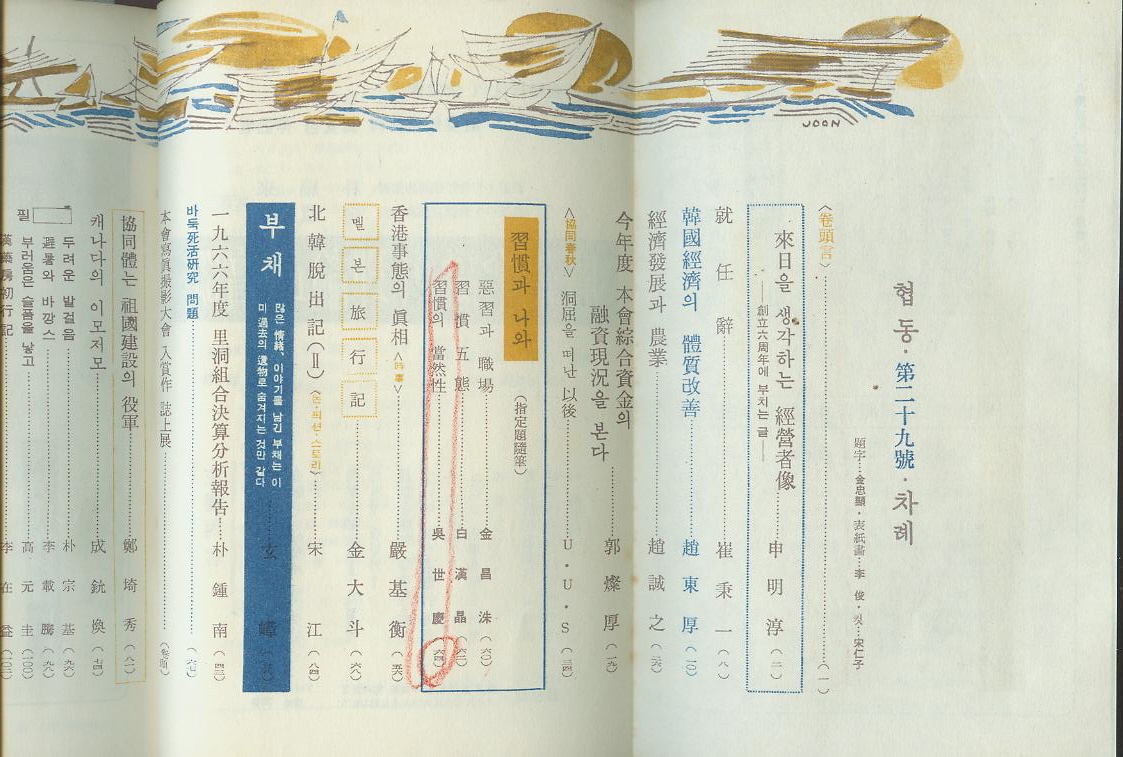 협동·第二十九號·차례
題字…金忠顯·表紙畵…李俊·컷…宋仁子
<卷頭言>(一)
來日을 생각하는 經營者像 申明淳(二)
──創立六周年에 부치는 글──
就任辭 崔秉一(八)
韓國經濟의 體質改善 趙東厚(一〇)
經濟發展과 農業 趙誠之
今年度 本會綜合資金의
融資現況을 본다 郭燦厚(一九)
<協同春秋> 洞屈을 떠난 以後 U·U·S
習慣과 나와 (指定題隨筆)
惡習과 職場 金昌洙(六〇)
習慣五態 白漢晶(六二)
習慣의 當然性 吳世慶(六四)
香港事態의 眞相<時事> 嚴基衡(五六)
멜본旅行記 金大斗(六八)
北韓脫出記(Ⅱ)<논·픽션·스토리> 宋江(八四)
부채
많은 情緖、이야기를 남긴 부채는 이
미 過去의 遺物로 숨겨지는 것만 같다
一九六六年度 里洞組合決算分析報告 朴鍾南(四三)
바둑死活硏究 問題
本會寫眞撮影大會 入賞作 誌上展
協同體는 祖國建設의 役軍 鄭埼秀(八一)
캐나다의 이모저모 成
필
두려운 발걸음 朴宗基(九六)
避暑와 바캉스 李載騰(九八)
부러움은 슬픔을 낳고 高元圭(一〇〇)
漢藥房初行記 李在益
JOON